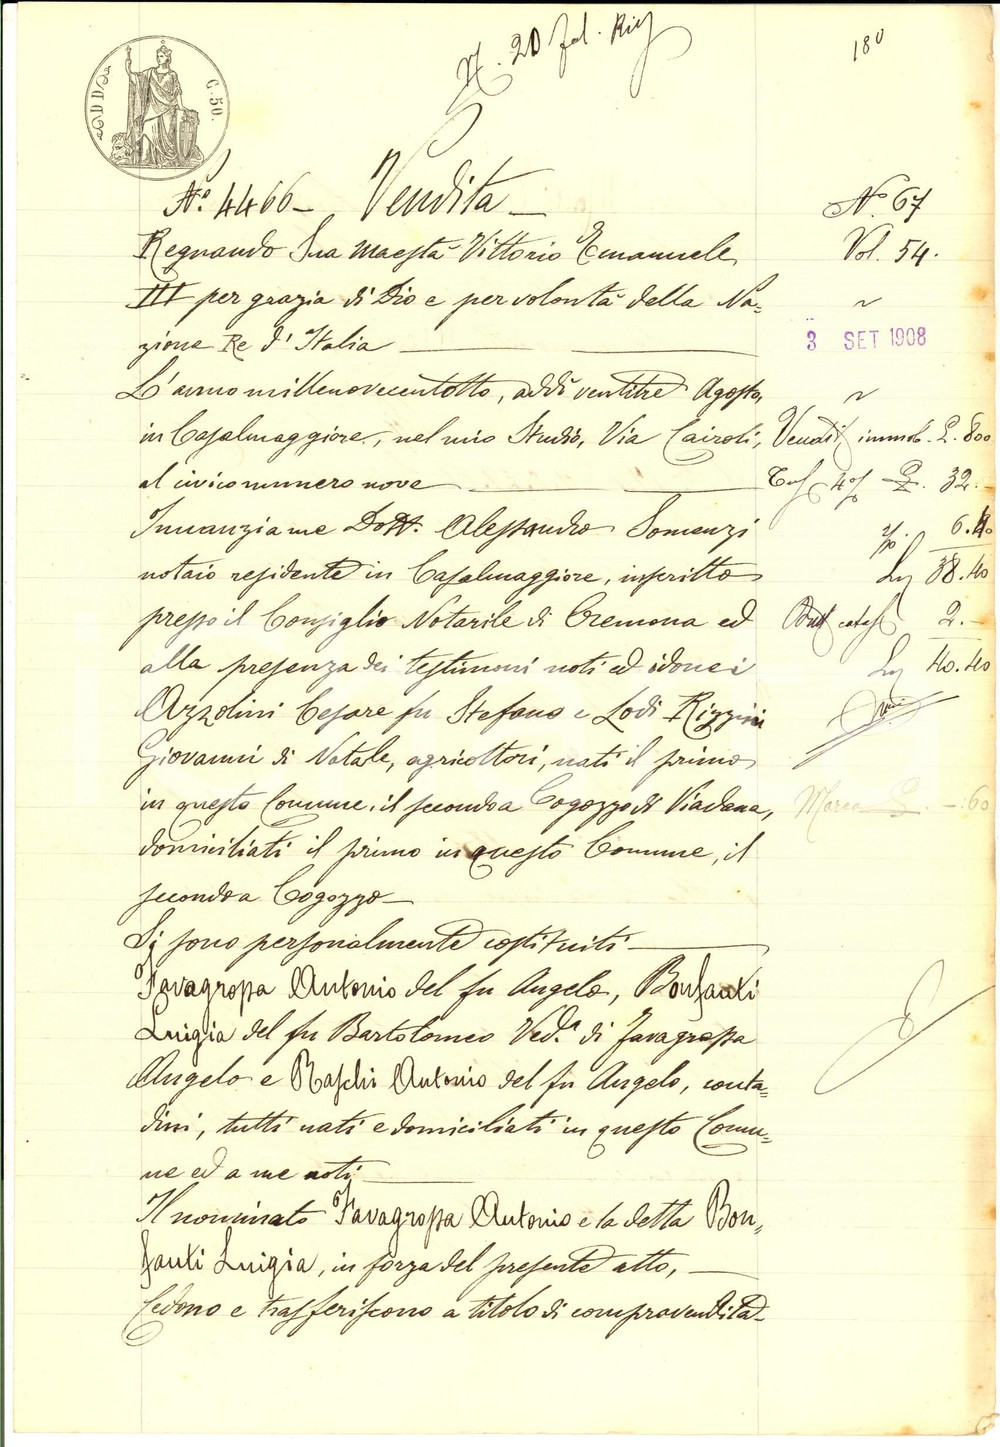 C. 50.
180
N.º 4466 - Vendita -
Regnando Sua Maestà Vittorio Emanuele
III per grazia di Dio e per volontà della Na=
zione Re d'Italia
L'anno millenovecentotto, addì ventitre Agosto,
in Casalmaggiore, nel mio Studio, Via Cairoli,
al civico numero nove
Innanzi a me Dott. Alessandro Somenzi
notaio residente in Casalmaggiore, inscritto
presso il Consiglio Notarile di Cremona ed
alla presenza dei testimoni noti ed idonei
Azzolini Cesare fu Stefano e Lodi Rizzini
Giovanni di Natale, agricoltori, nati il primo
in questo Comune, il secondo a Cogozzo di Viadana,
domiciliati il primo in questo Comune, il
secondo a Cogozzo
Si sono personalmente costituiti
Favagrossa Antonio del fu Angelo, Bonfanti
Luigia del fu Bartolomeo Ved.ª di Favagrossa
Angelo e Raschi Antonio del fu Angelo, conta=
dini, tutti nati e domiciliati in questo Comu=
ne ed a me noti
Il nominato Favagrossa Antonio e la detta Bon=
fanti Luigia, in forza del presente atto,
Cedono e trasferiscono a titolo di compravendita
N.º 67
Vol. 54.
3 SET 1908
immob. L. 800
4% L. 32.-
6.40
38.40
2.-
40.40
Marca L. -.60